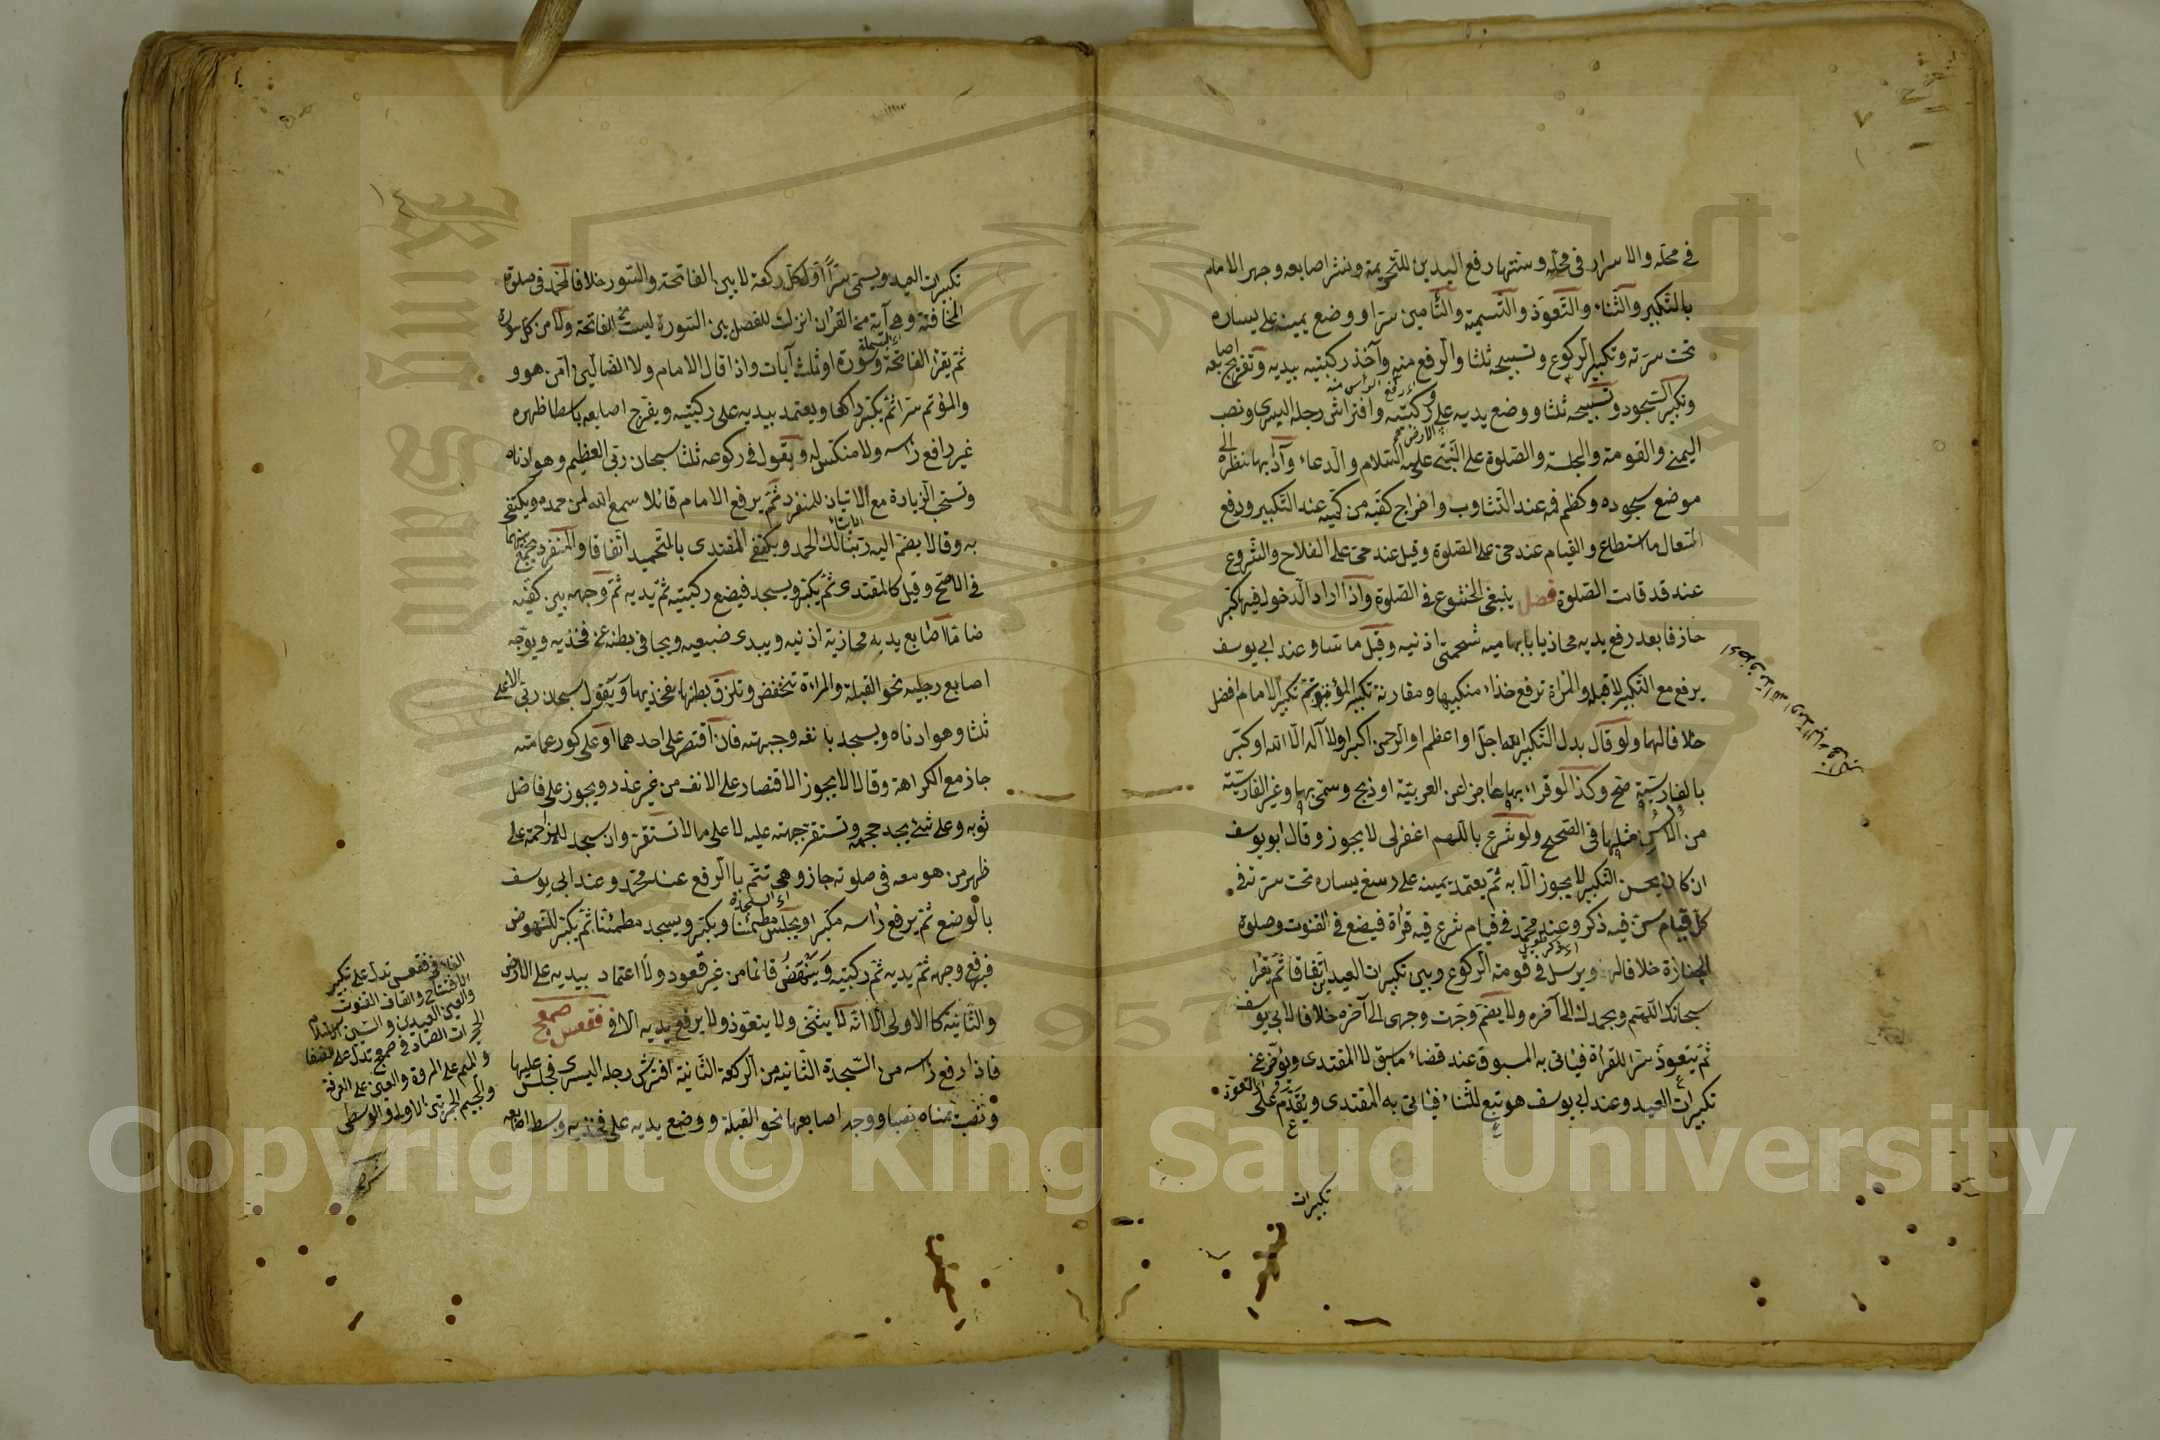 في محله والاسرار في محله وسننها رفع اليدين للتحريمة ونشر اصابعه وجهر الامام
بالتكبير والثناء والتعوذ والتسمية والتأمين سرا ووضع يمينه على يساره
تحت سرته وتكبير الركوع وتسبيحه ثلثا والرفع منه وآخذ ركبتيه بيديه وتفريج اصابعه
وتكبير السجود وتسبيحه ثلثا ووضع يديه وركبتيه وافتراش رجله اليسرى ونصب
اليمنى والقومة والجلسة والصلوة على النبي عليه السلام والدعاء وآدابها نظره الى
موضع سجوده وكظم فمه عند التثاوب واخراج كفيه من كميه عند التكبير ودفع
السعال ما استطاع والقيام عند حي على الصلوة وقيل عند حي على الفلاح والشروع
عند قد قامت الصلوة فصل ينبغي الخشوع في الصلوة واذا اراد الدخول فيها كبر
حاذفا بعد رفع يديه محاذيا بابهاميه شحمتي اذنيه وقيل ماسا وعند ابي يوسف
يرفع مع التكبير لا قبله والمرأة ترفع حذاء منكبيها ومقارنة تكبير المؤتم تكبير الامام افضل
خلافا لهما ولو قال بدل التكبير الله اجل او اعظم او الرحمن اكبر او لا اله الا الله او كبر
بالفارسية صح وكذا لو قرأ بها عاجزا عن العربية او ذبح وسمى بها وغير الفارسية
من الالسن مثلها في الصحيح ولو شرع باللهم اغفر لي لا يجوز وقال ابو يوسف
ان كان يحسن التكبير لا يجوز الا به ثم يعتمد بيمينه على رسغ يساره تحت سرته في
كل قيام سن فيه ذكر وعند محمد في قيام شرع فيه قرأة فيضع في القنوت وصلوة
الجنازة خلافا له ويرسل في قومة الركوع وبين تكبيرات العيدين اتفاقا ثم يقرأ
سبحانك اللهم وبحمدك الى آخره ولا يضم وجهت وجهي الى آخره خلافا لابي يوسف
ثم يتعوذ سرا للقرأة فيأتي به المسبوق عند قضاء ما سبق لا المقتدي ويؤخر عن
تكبيرات العيد وعند ابي يوسف هو تبع للثناء فيأتي به المقتدي ويقدم على
تكبيرات
١٤
تكبيرات العيد ويسمي سرا اول كل ركعة لا بين الفاتحة والسورة خلافا لمحمد في صلوة
المخافتة وهي آية من القرآن انزلت للفصل بين السورة ليست من الفاتحة ولا من كل سورة
ثم يقرأ الفاتحة وسورة او ثلث آيات واذا قال الامام ولا الضالين امن هو و
والمؤتم سرا ثم يكبر راكعا ويعتمد بيديه على ركبتيه ويفرج اصابعه باسطا ظهره
غير رافع رأسه ولا منكس له ويقول في ركوعه ثلثا سبحان ربي العظيم وهو ادناه
وتستحب الزيادة مع الايتار للمنفرد ثم يرفع الامام قائلا سمع الله لمن حمده ويكتفي
به وقالا يضم اليه ربنا لك الحمد ويكتفي المقتدي بالتحميد اتفاقا والمنفرد يجمع بينهما
في الاصح وقيل كالمقتدي ثم يكبر ويسجد فيضع ركبتيه ثم يديه ثم وجهه بين كفيه
ضاما اصابع يديه محاذية اذنيه ويبدي ضبعيه ويجافي بطنه عن فخذيه ويوجه
اصابع رجليه نحو القبلة والمرأة تنخفض وتلزق بطنها بفخذيها ويقول سبحان ربي الاعلى
ثلثا وهو ادناه ويسجد بانفه وجبهته فان اقتصر على احدهما او على كور عمامته
جاز مع الكراهة وقالا لا يجوز الاقتصار على الانف من غير عذر ويجوز على فاضل
ثوبه وعلى شئ يجد حجمه وتستقر جبهته عليه لا على ما لا تستقر وان سجد للزحمة على
ظهر من هو معه في صلوته جاز وهي تتم بالرفع عند محمد وعند ابي يوسف
بالوضع ثم يرفع رأسه مكبرا ويجلس مطمئنا ويكبر ويسجد مطمئنا ثم يكبر للنهوض
فيرفع وجهه ثم يديه ثم ركبتيه وينهض قائما من غير قعود ولا اعتماد بيديه على الارض
والثانية كالاولى الا انه لا يثني ولا يتعوذ ولا يرفع يديه الا في فقعس صمعج
فاذا رفع رأسه من السجدة الثانية من الركعة الثانية افترش رجله اليسرى فجلس عليها
ونصب يمناه نصبا ووجه اصابعها نحو القبلة ووضع يديه على فخذيه وبسط اصابعه
الفاء في فقعس تدل على تكبير
الافتتاح والقاف القنوت
والعين العيدين والسين استلام
الحجر الصاد في صمعج تدل على الصفا
والميم على المروة والعين على العرفة
والجيم الجمرتين الاولى والوسطى